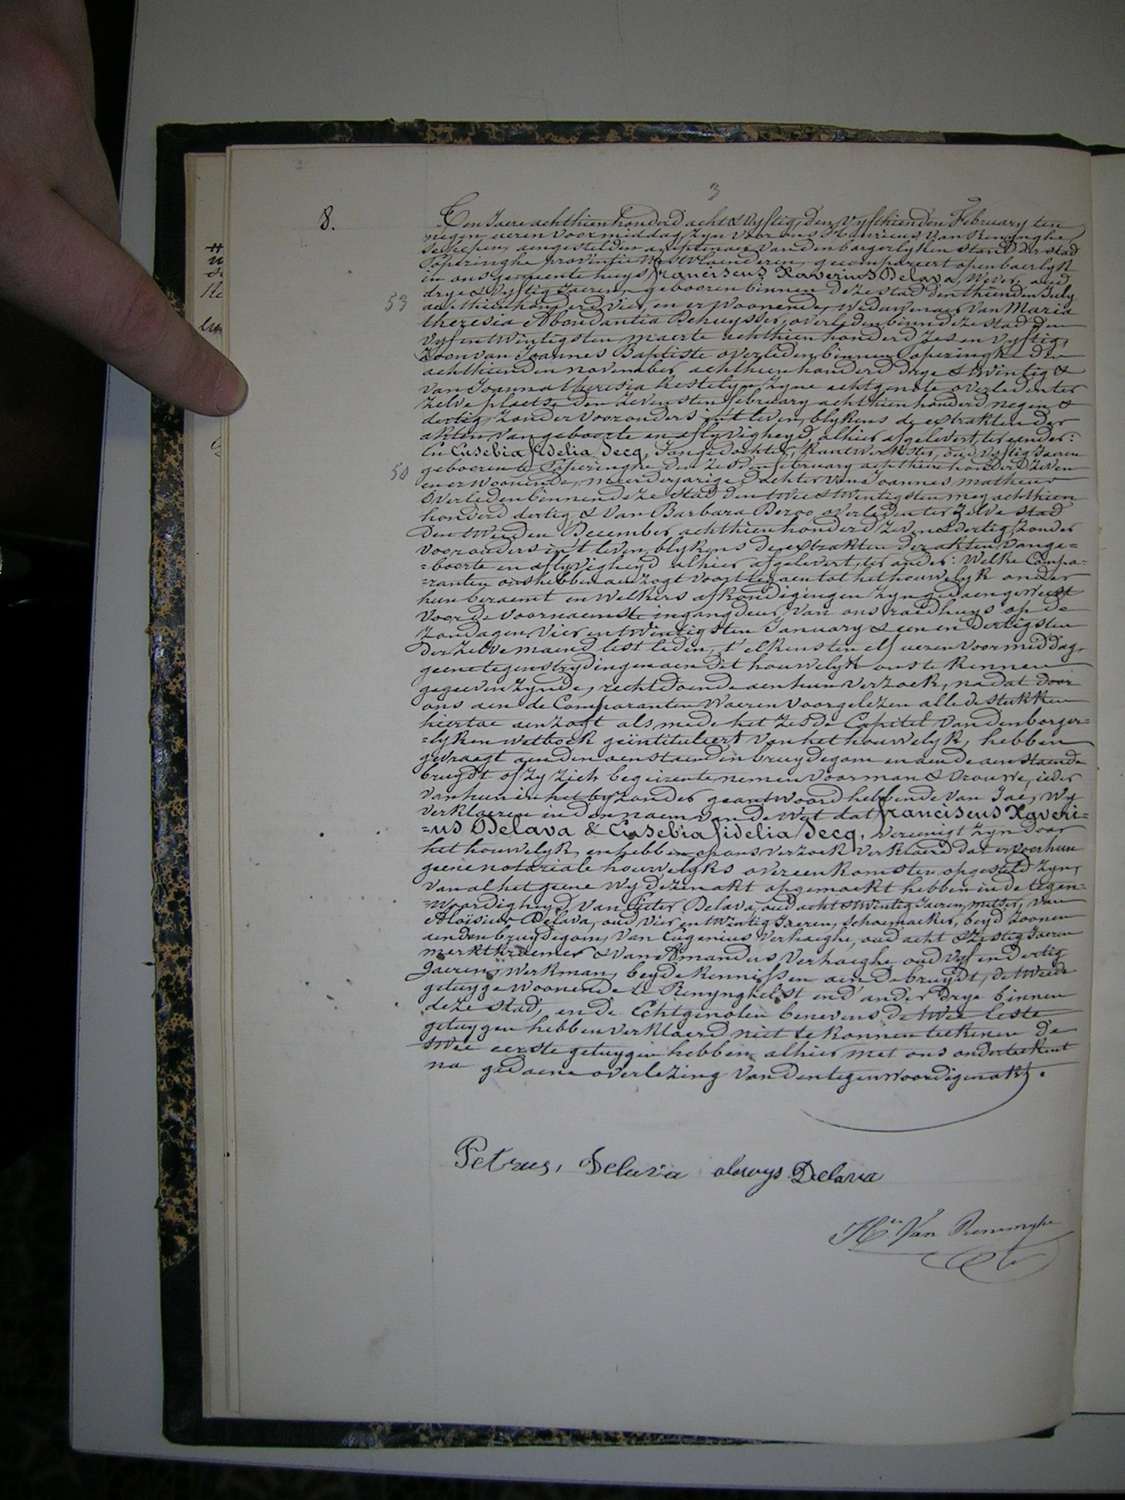 3
8.
Ten Jaere achthien honderd acht & vyftig, den vyfthienden February ten
negen ueren voormiddag, zyn voor ons Henricus Van Renynghe
schepen, aengestelden amptenaer van den borgerlyken stand der stad
Poperinghe provintie West Vlaenderen, gecompareert openbaerlyk
in ons gemeente huys, Franciscus Xaverius Delava, Wever, oud
53 drye & vyftig Jaeren, geboren binnen deze stad den thienden July
achthien honderd vier en er Woonende, Weduwaer van Maria
theresia Abondantia Dehuysser, overleden binnen deze stad den
vyf en twintigsten maerte achthien honderd zes en vyftig,
Zoon van Joannes Baptiste overleden binnen poperinghe den
achthienden november achthien honderd drye & twintig &
van Joanna theresia Kestelyn, zyne echtgenote overleden ter
zelve plaetse den zevensten february achthien honderd negen &
dertig, zonder voorouders in't leven, blykens de extrakten der
akten, van geboorte en aflyvigheyd, alhier afgelevert, ter eender:
En Eusebia fidelia Decq, Jongedochter, Kantwerkster, oud vyftig Jaeren
50 geboren te Poperinghe den zesden february achthien honderd zeven
en er Woonende, meerderjarige dochter van Joannes matheus
overleden binnen deze stad den twee & twintigsten mey achthien
honderd dertig & van Barbara Bergo overleden ter zelve stad
den tweeden December achthien honderd zeven & dertig, zonder
voorouders in't leven, blykens de extrakten der akten van ge=
=boorte en aflyvigheyd alhier afgelevert, ter ander: Welke Compa=
=ranten ons hebben aenzogt voort te gaen tot het houwelyk onder
hun beraemt en welkers afkondigingen zyn gedaen geweest
voor de voornaemste ingangdeur van ons raedhuys op de
zondagen, vier en twintigsten January & een en dertigsten
der zelve maend lest leden, t'elkensten elf ueren voormiddag,
geene tegenstrydingen aen dit houwelyk ons te kennen
gegeven zynde, rechtdoende aen hun verzoek, nadat door
ons aen de Comparanten Waeren voorgelezen alle de stukken
hiertoe aenzogt als mede het zesde Capitel van den borger=
=lyken wetboek geintituleert van het houwelyk, hebben
gevraegt aen den aenstaenden bruydegom en aen de aenstaende
bruydt of zy zich begeirente nemen voor man & vrouwe, ieder
van hun in het byzonder geantwoord hebbende van Jae, Wy
verklaeren in den naem van de Wet dat Franciscus Xaveri=
=us Delava & Eusebia fidelia Decq, vereenigt zyn door
het houwelyk, en hebben op ons verzoek verklaerd dat er voor hun
geene notariale houwelyks overeenkomsten opgesteld zyn,
van al het geene Wy dezen akt opgemaekt hebben in de tegen=
=woordigheyd van Pieter Delava, oud acht & twintig Jaeren, mulder, van
Aloïsius Delava, oud vier en twintig Jaeren, schoemaeker, beyd zoonen
aen den bruydegom, van Eugenius Verhaeghe, oud acht & zestig Jaeren
merktkraemer & van Amandus Verhaeghe oud vyf en dertig
Jaeren, Werkman, beyde kennissen aen de bruydt, de tweede
getuyge woonende te Renynghelst en d'ander drye binnen
deze stad, en de Echtgenoten benevens de twee leste
getuygen hebben verklaerd niet te konnen teekenen de
twee eerste getuygen hebben alhier met ons onderteekent
na gedaene overlezing van den tegenwoordigen akt.
Petrus, Delava alowys Delava
H.ri Van Renynghe